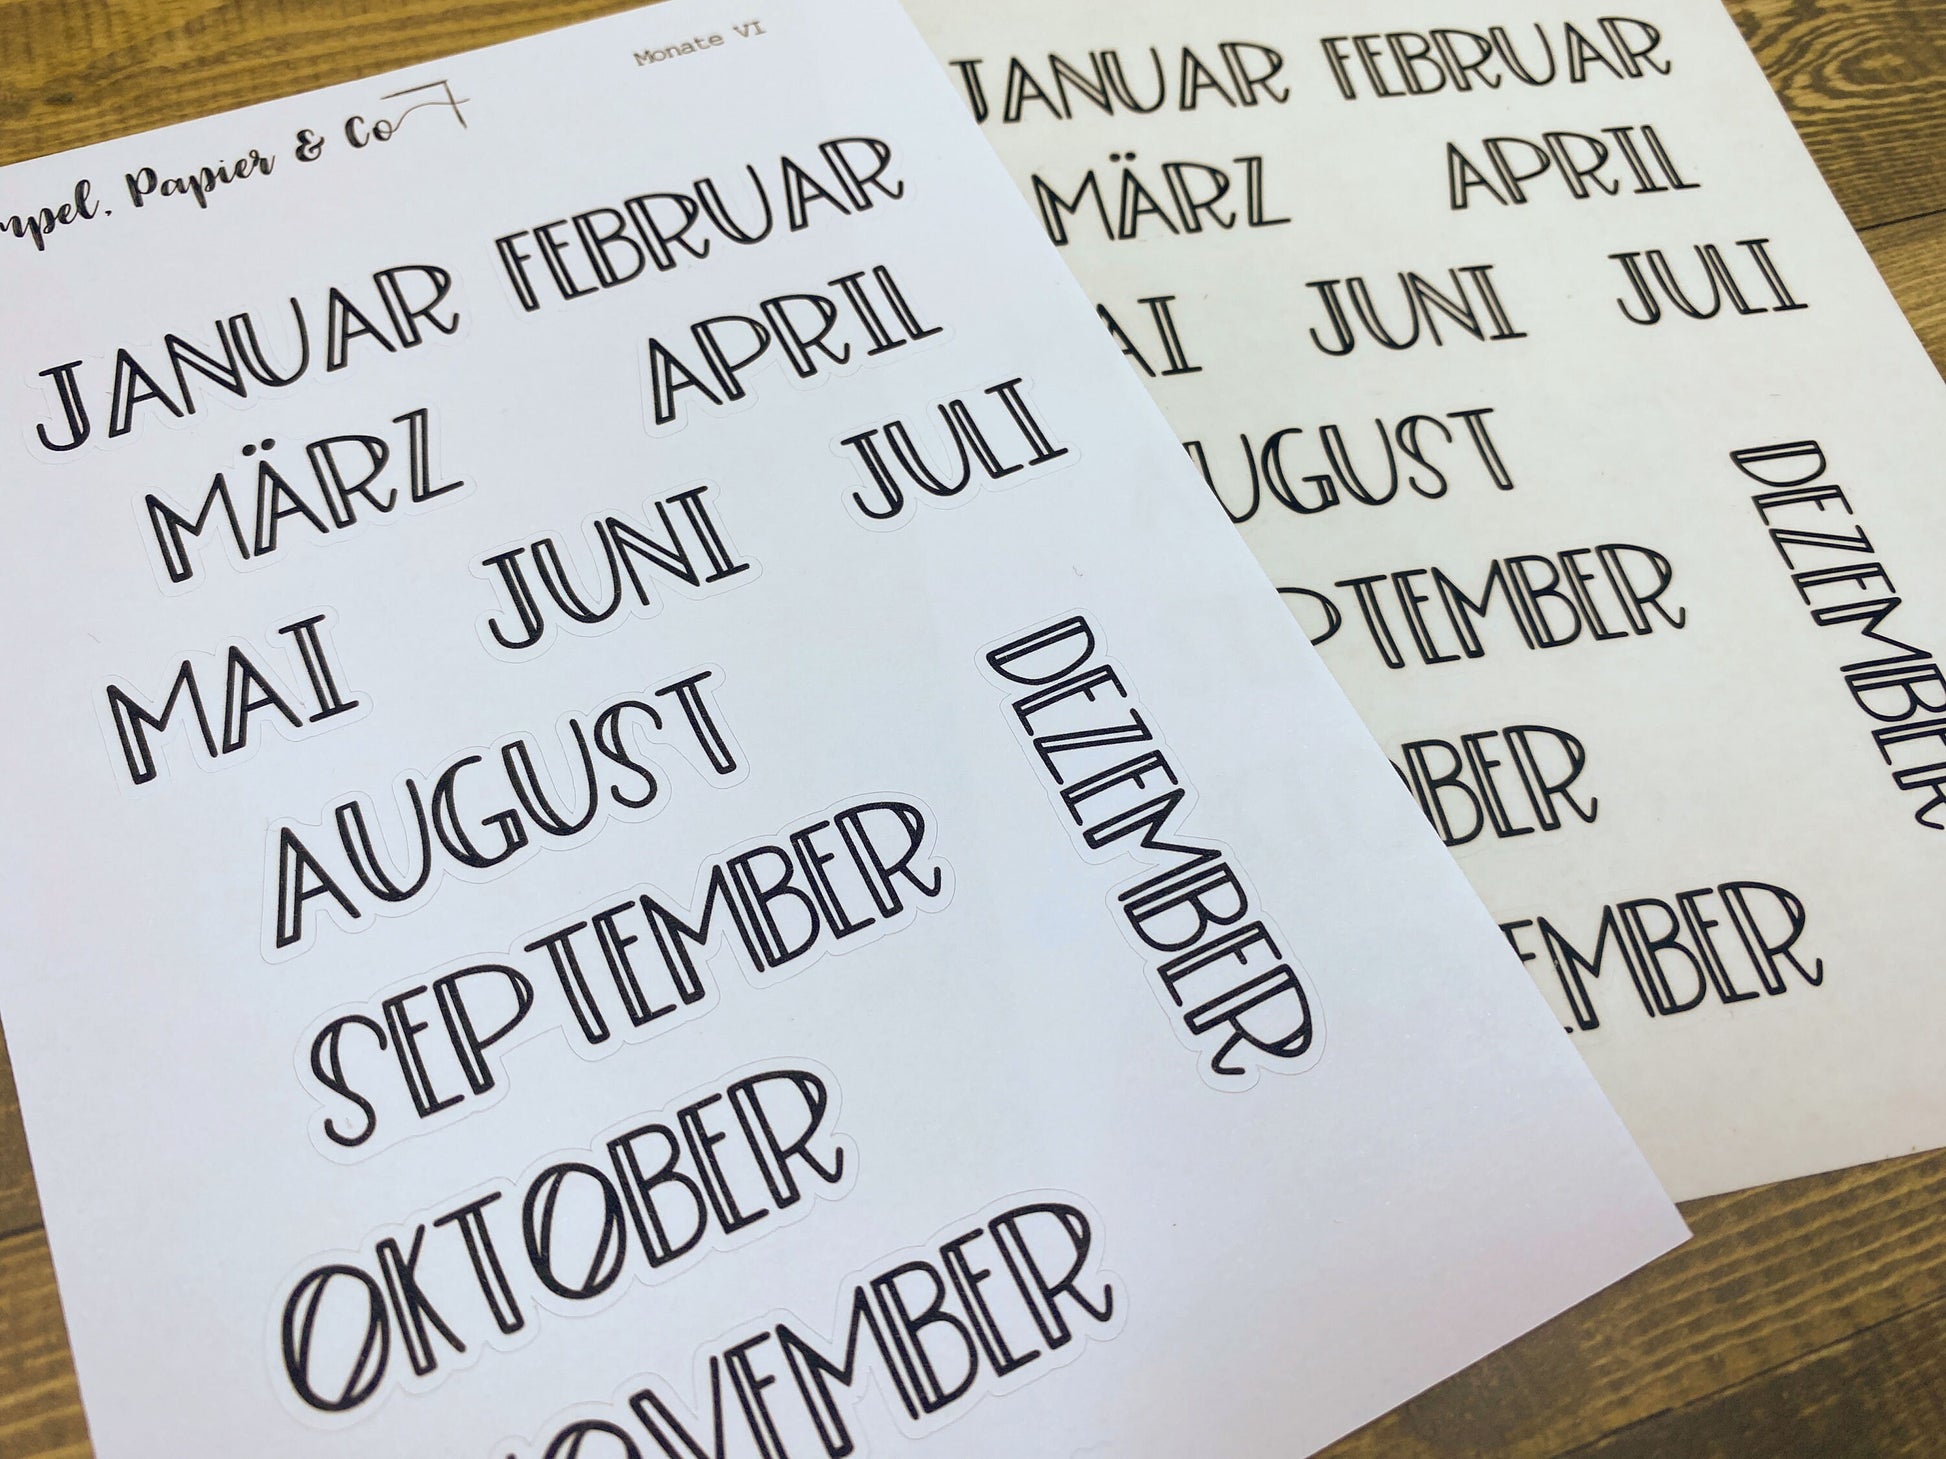 Monate VI
Papier & Co
JANUAR FEBRUAR
MÄRZ APRIL
MAI JUNI JULI
AUGUST
SEPTEMBER
DEZEMBER
OKTOBER
NOVEMBER
JANUAR FEBRUAR
MÄRZ APRIL
AI JUNI JULI
UGUST
DEZEMBER
PTEMBER
OBER
EMBER